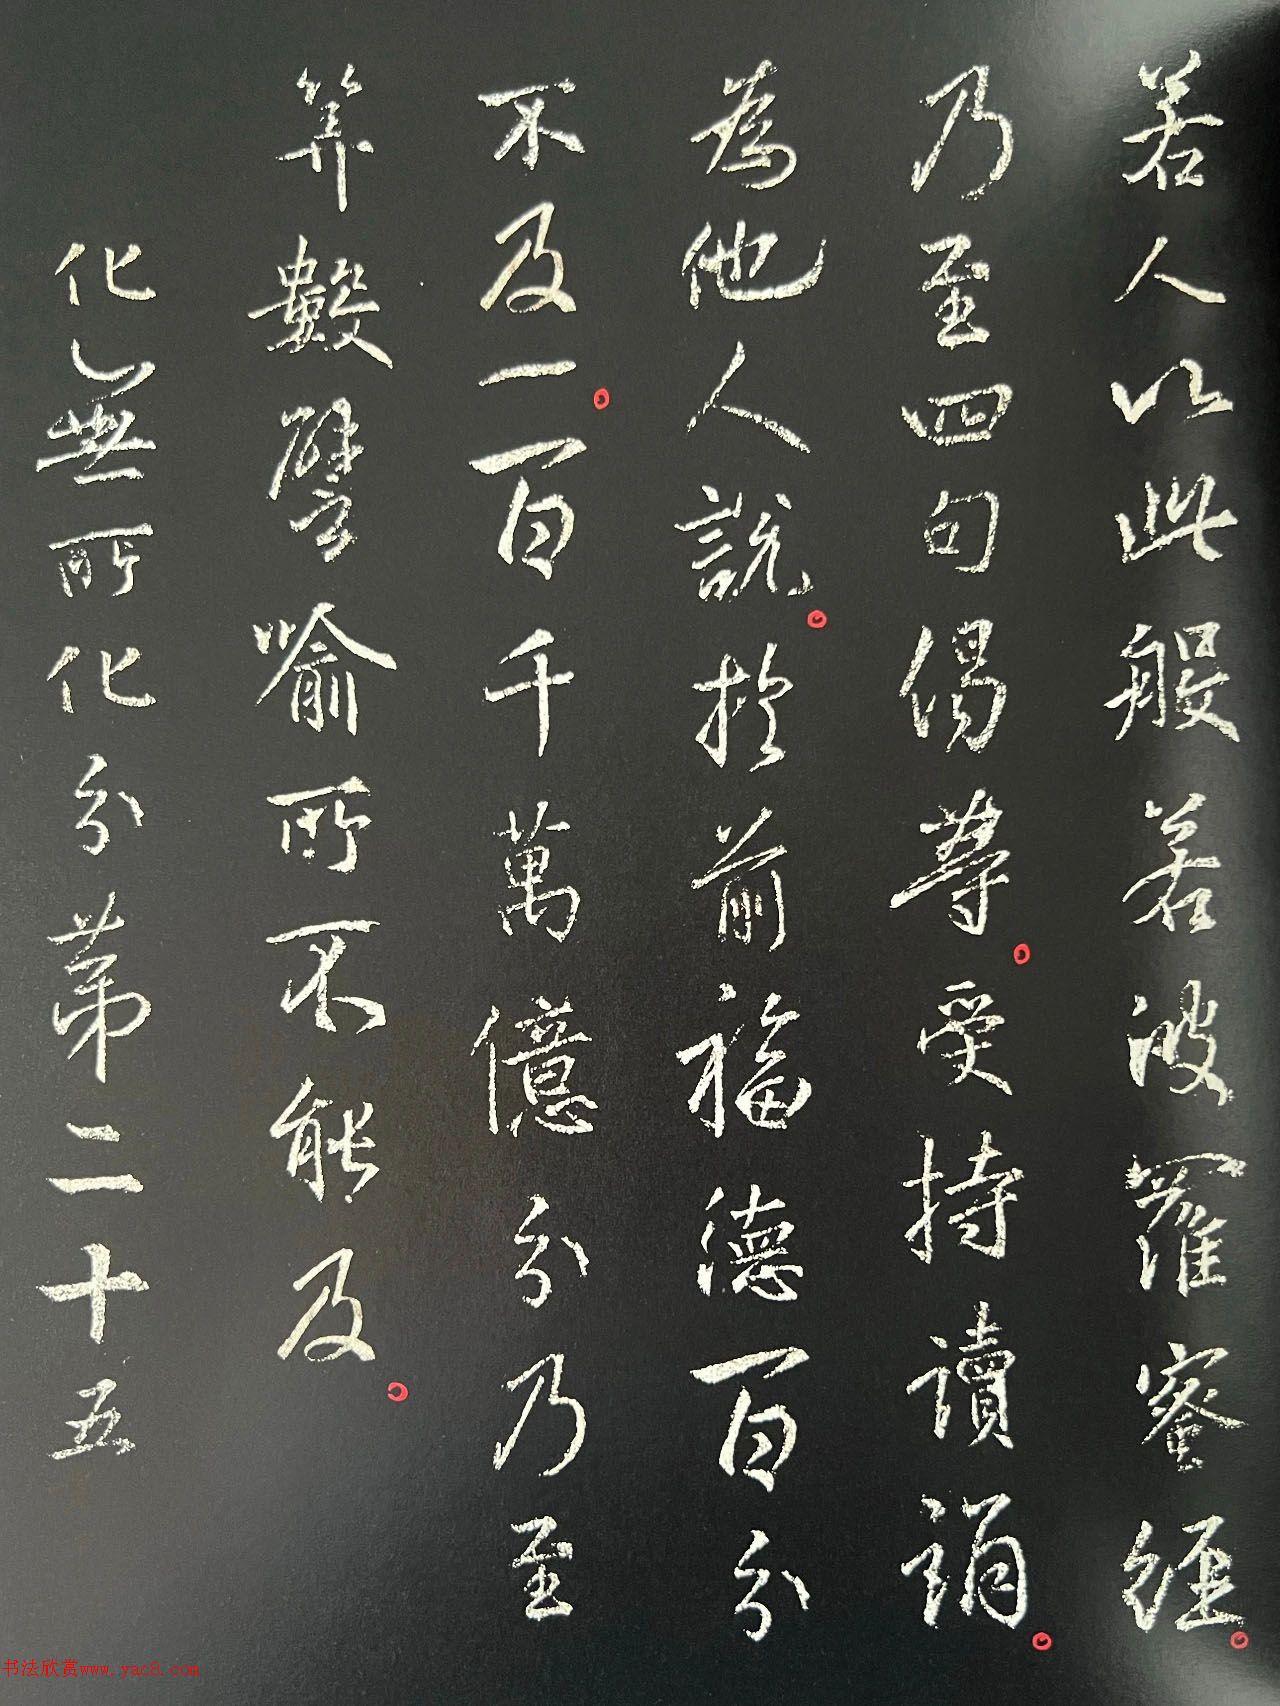 若人以此般若波羅蜜經。
乃至四句偈等。受持讀誦。
為他人說。於前福德百分
不及一。百千萬億分乃至
算數譬喻所不能及。
化無所化分第二十五
书法欣赏www.yac8.com